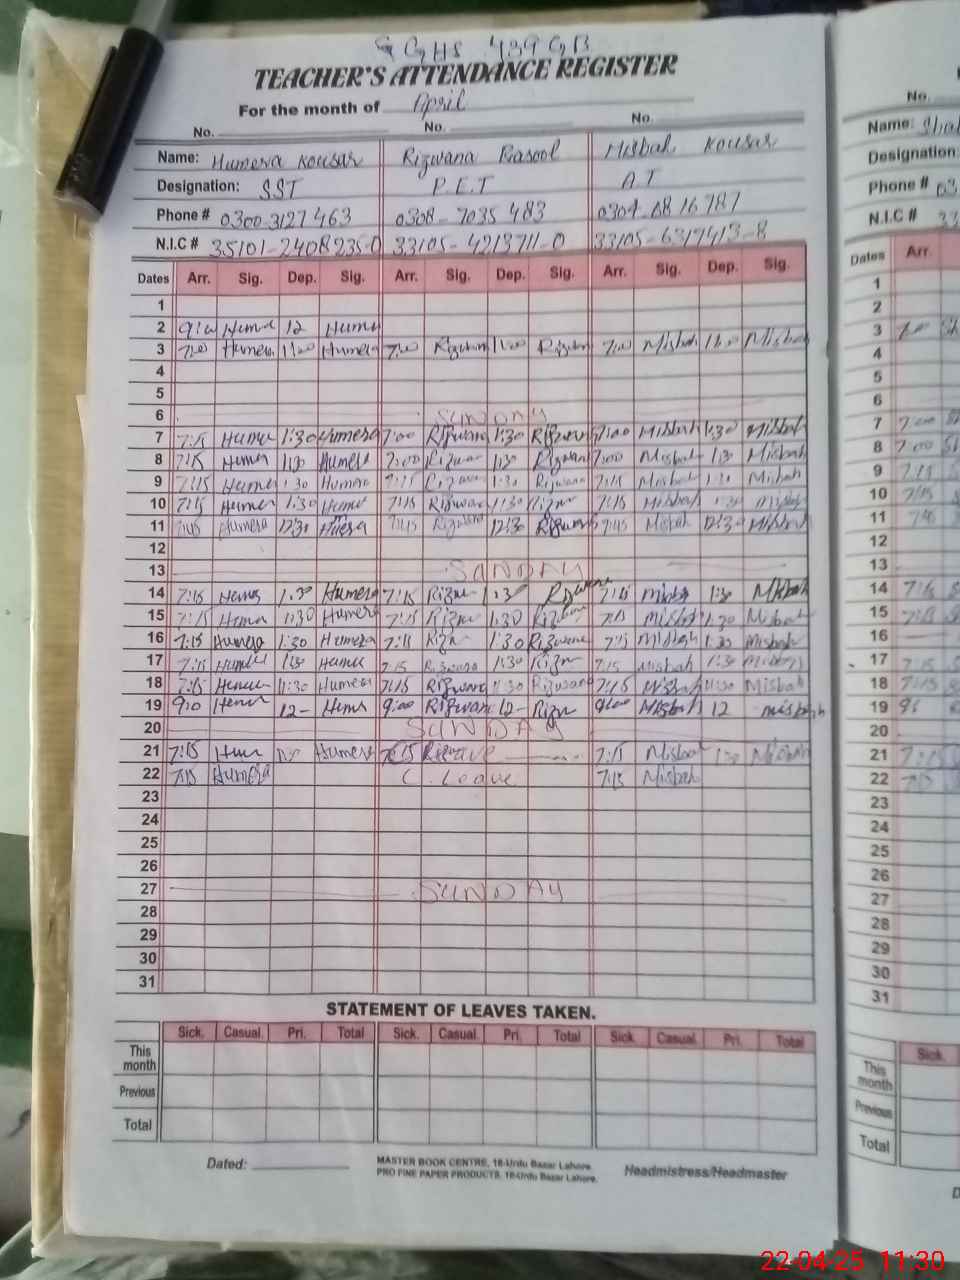 GGHS 439 GB
TEACHER'S ATTENDANCE REGISTER
For the month of April
No. No. No.
Name: Humera Kousar Rizwana Rasool Misbah Kousar
Designation: SST P.E.T A.T
Phone # 0300-3127463 0308-7035483 0304-6816787
N.I.C # 35101-2408235-0 33105-4213711-0 33105-6317413-8
Dates Arr. Sig. Dep. Sig. Arr. Sig. Dep. Sig. Arr. Sig. Dep. Sig.
1
2 Huma 12 Huma
3 7:00 Humera 11:00 Humera 7:00 Rizwan 11:00 Rizwan 7:00 Misbah 11:00 Misbah
4
5
6 SUNDAY
7 7:15 Humer 1:30 Humera 7:00 Rizwan 1:30 Rizwan 7:00 Misbah 1:30 Misbah
8 7:15 Humer 1:30 Humera 7:00 Rizwan 1:30 Rizwan 7:00 Misbah 1:30 Misbah
9 7:15 Humera 1:30 Humera 7:15 Rizwan 1:30 Rizwana 7:15 Misbah Misbah
10 7:15 Humer 1:30 Humer 7:15 Rizwan 1:30 7:15 Misbah 1:30 Misbah
11 7:45 Humera 12:30 7:45 Rizwana 12:30 Rizwan 7:45 Misbah 12:30 Misbah
12
13 SUNDAY
14 7:15 1:30 Humera 7:15 1:30 Rizwana 7:15 Misbah 1:30 Misbah
15 7:15 Huma 1:30 Humera 7:15 1:30 7:15 Misbah 1:30 Misbah
16 7:15 Humera 1:30 Humera 7:15 1:30 Rizwana 7:15 Misbah 1:30 Misbah
17 7:15 1:30 Humer 7:15 Rizwana 1:30 7:15 Misbah 1:30 Misbah
18 7:15 11:30 Humera 7:15 Rizwana 11:30 Rizwana 7:15 Misbah 11:30 Misbah
19 12- Huma 9:00 Rizwan 12- 9:00 Misbah 12 Misbah
20 SUNDAY
21 7:15 Humera 7:15 7:15 Misbah 1:30 Misbah
22 7:15 Humera C. Leave 7:15 Misbah
23
24
25
26
27 SUNDAY
28
29
30
31
STATEMENT OF LEAVES TAKEN.
Sick. Casual. Pri. Total Sick. Casual. Pri. Total Sick. Casual. Pri. Total
This month
Previous
Total
Dated:
MASTER BOOK CENTRE, 16-Urdu Bazar Lahore.
PRO FINE PAPER PRODUCTS. 16-Urdu Bazar Lahore.
Headmistress/Headmaster
No.
Name:
Designation:
Phone # 03
N.I.C # 33
Dates Arr.
1
2
3 7:00
4
5
6
7 7:00
8 7:00
9 7:15
10 7:15
11
12
13
14 7:15
15 7:15
16
17 7:15
18 7:15
19
20
21 7:15
22
23
24
25
26
27
28
29
30
31
Sick.
This month
Previous
Total
22-04-25 11:30